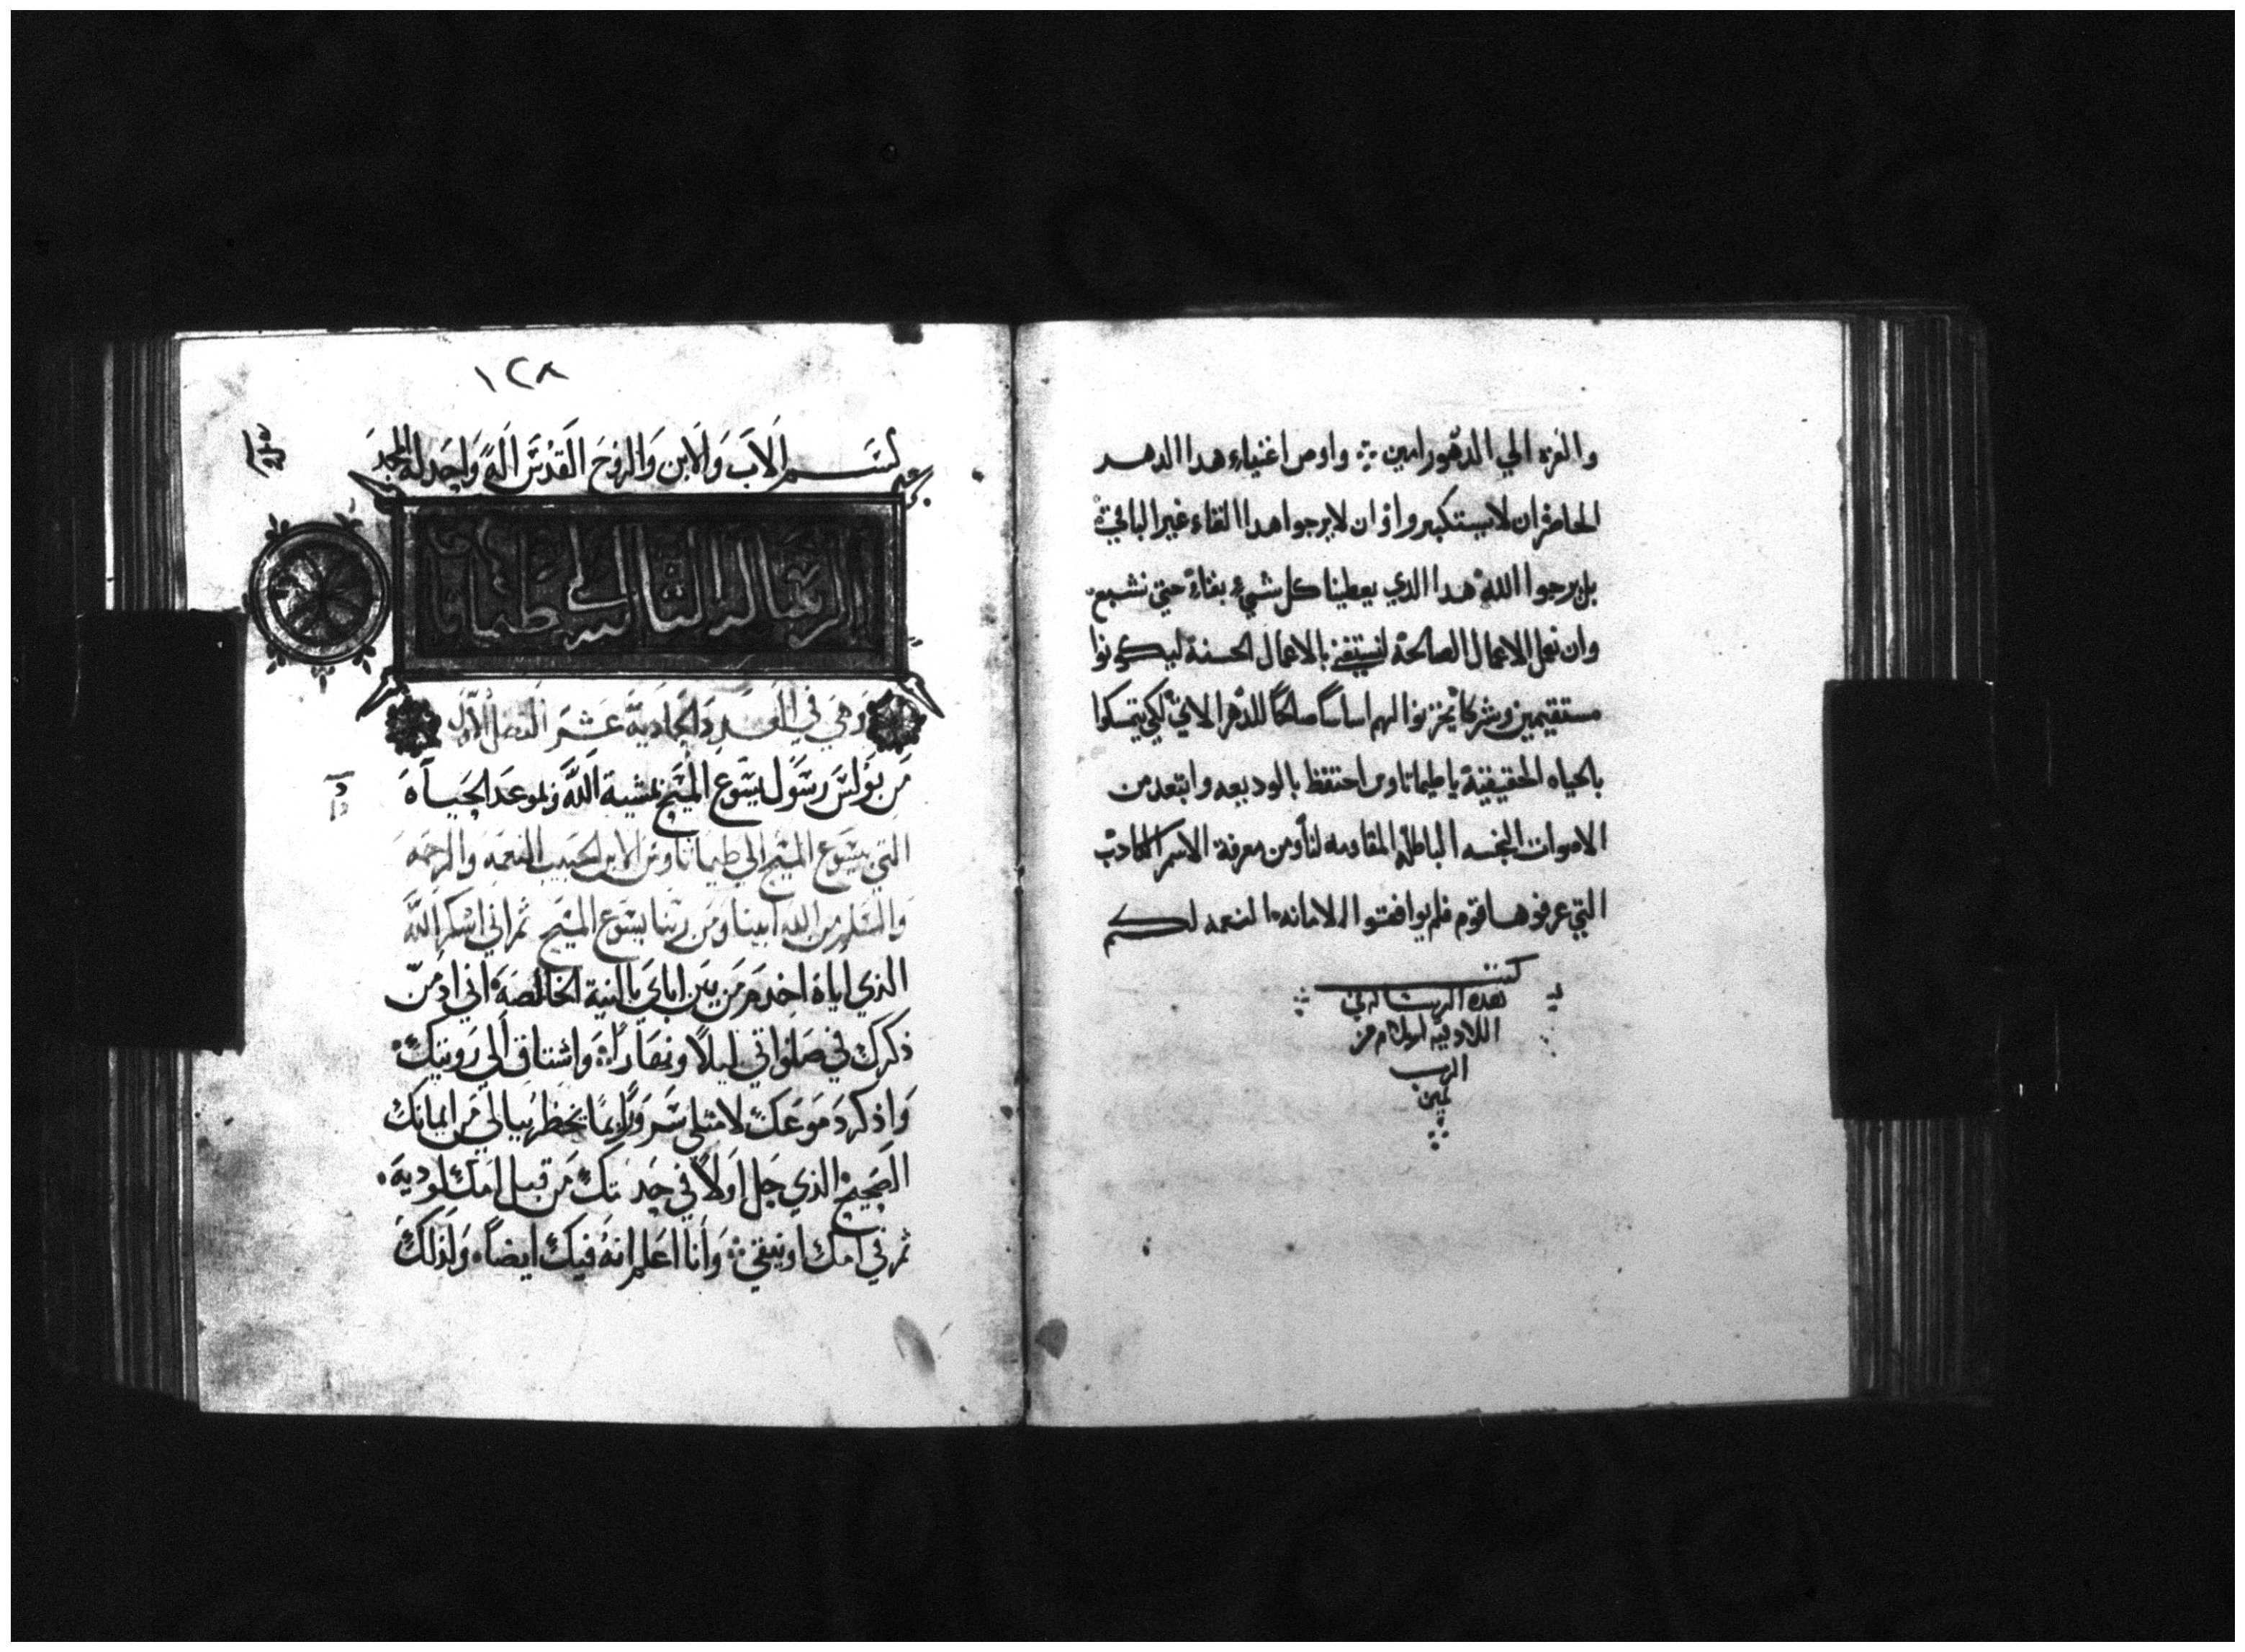 والعزه الي الدهور امين واوص اغنياء هدا الدهر
الحاضر ان لا يستكبروا وان لا يرجوا هدا الغناء غير الباقي
بل يرجوا الله هدا الدي يعطينا كل شيء بغناء حتي نشبع
وان نعمل الاعمال الصالحة بالاعمال الحسنة ليكونوا
مستقيمين وشركاء يخزنوا لهم اساسا صالحا للدهر الاتي لكي يتمسكوا
بالحياه الحقيقية يا طيماتاوس احتفظ بالوديعه وابتعد من
الاصوات النجسه الباطله المقاومه لنا ومن معرفة الاسم الكادب
التي عرفوها قوم فلم يوافقوا الامانه النعمه لكم
الرب
١٢٨
بسم الاب والابن والروح القدس اله واحد له المجد
الرساله الثانيه الي طيماتا
وهي في العدد الحادية عشر الفصل الاول
من بولس رسول يسوع المسيح بمشية الله وبموعد الحياة
التي بيسوع المسيح الي طيماتاوس الابن الحبيب النعمه والرحمه
والسلم من الله ابينا ومن ربنا يسوع المسيح ثم اني اشكر الله
الذي اياه اخدم من بين اباي بالنية الخالصه اني ادمن
ذكرك في صلواتي ليلا ونهارا واشتاق الي رويتك
واذكر دموعك لامتلي سرورا بما يخطر ببالي من ايمانك
الصحيح الذي حل اولا في جدتك من قبل امك لوديه
ثم في امك اونيقي وانا اعلم انه فيك ايضا ولذلك